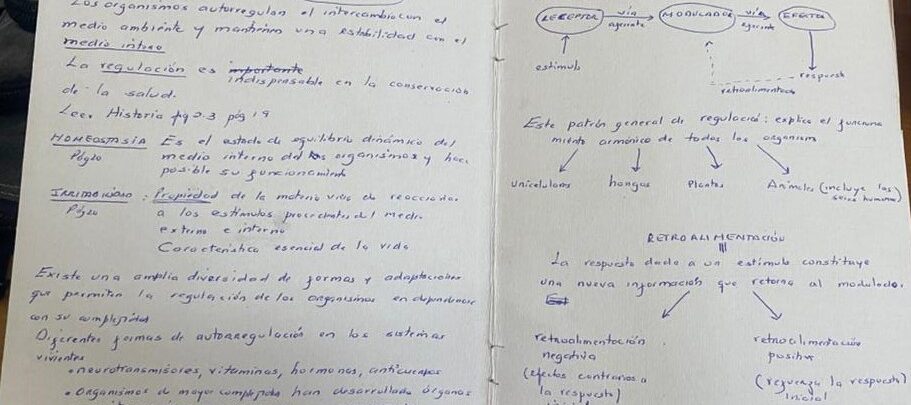 Los organismos autorregulan el intercambio con el
medio ambiente y mantienen una estabilidad con el
medio interno
La regulación es importante
indispensable en la conservación
de la salud.
Leer Historia pg 2-3 pág 19
HOMEOSTASIA Es el estado de equilibrio dinámico del
Pág 20 medio interno del los organismos y hace
posible su funcionamiento
IRRITABILIDAD: Propiedad de la materia viva de reaccionar
Pág 20 a los estímulos procedentes del medio
externo e interno
Característica esencial de la vida
Existe una amplia diversidad de formas y adaptaciones
que permiten la regulación de los organismos en dependencia
con su complejidad
Diferentes formas de autorregulación en los sistemas
vivientes
• neurotransmisores, vitaminas, hormonas, anticuerpos
• Organismos de mayor complejidad han desarrollado órganos
RECEPTOR vía aferente MODULADOR vía eferente EFECTOR
estímulo
respuesta
retroalimentación
Este patrón general de regulación: explica el funciona
miento armónico de todos los organism
unicelulares hongos Plantas Animales (incluye los
seres humanos)
RETROALIMENTACIÓN
La respuesta dada a un estímulo constituye
una nueva información que retorna al modulador.
retroalimentación retroalimentación
negativa positiva
(efectos contrarios a (refuerza la respuesta
la respuesta) inicial)